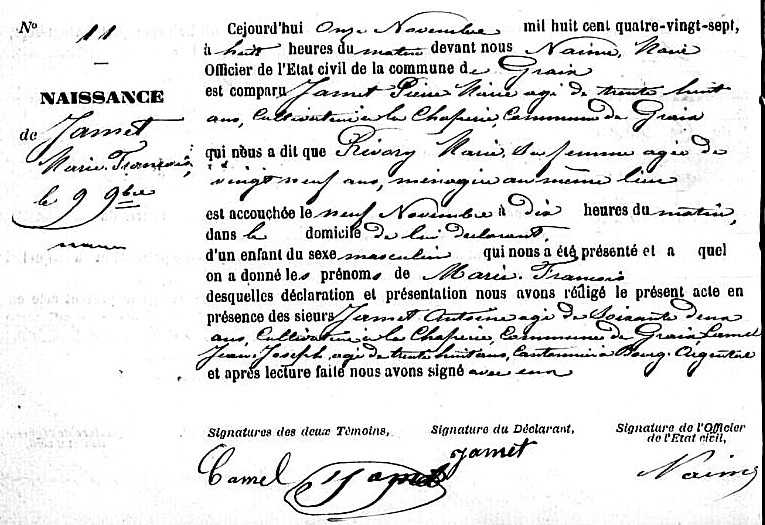 No 11
NAISSANCE
de Jamet
Marie François
le 9 9bre
Cejourd'hui onze Novembre mil huit cent quatre-vingt-sept,
à huit heures du matin devant nous Naime, Maire
Officier de l'Etat civil de la commune de Graix
est comparu Jamet Pierre Marie agé de trente huit
ans, Cultivateur à la Chaperie, Commune de Graix
qui nous a dit que Rivory Marie, sa femme agée de
vingt neuf ans, ménagère au même lieu
est accouchée le neuf Novembre à dix heures du matin,
dans le domicile de lui declarant,
d'un enfant du sexe masculin qui nous a été présenté et a quel
on a donné les prénoms de Marie François
desquelles déclaration et présentation nous avons rédigé le présent acte en
présence des sieurs Jamet Antoine agé de Soixante deux
ans, Cultivateur à la Chaperie, Commune de Graix,
Jean Joseph, agé de trente huit ans, Cantonnier à Bourg-Argental
et après lecture faite nous avons signé avec eux
Signatures des deux Témoins,
Signature du Déclarant,
Signature de l'Officier
de l'Etat civil,
Jamet
Camel
Jamet
Naime